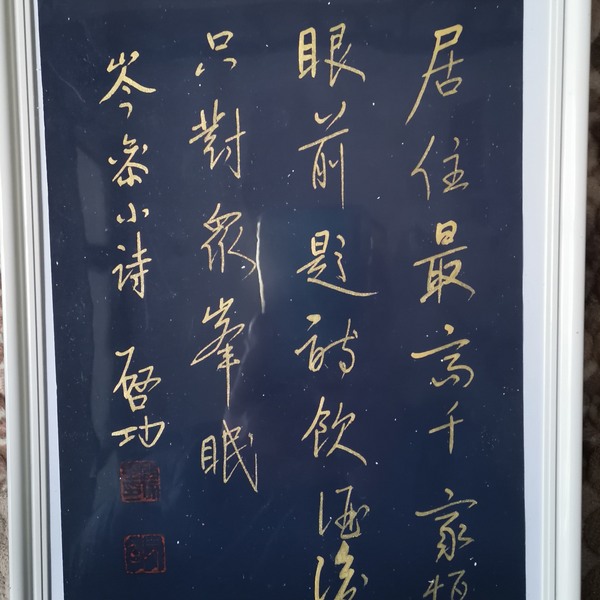 居住最高千家恒
眼前題詩飲酒後
只對衆峯眠
岑參小詩
啓功